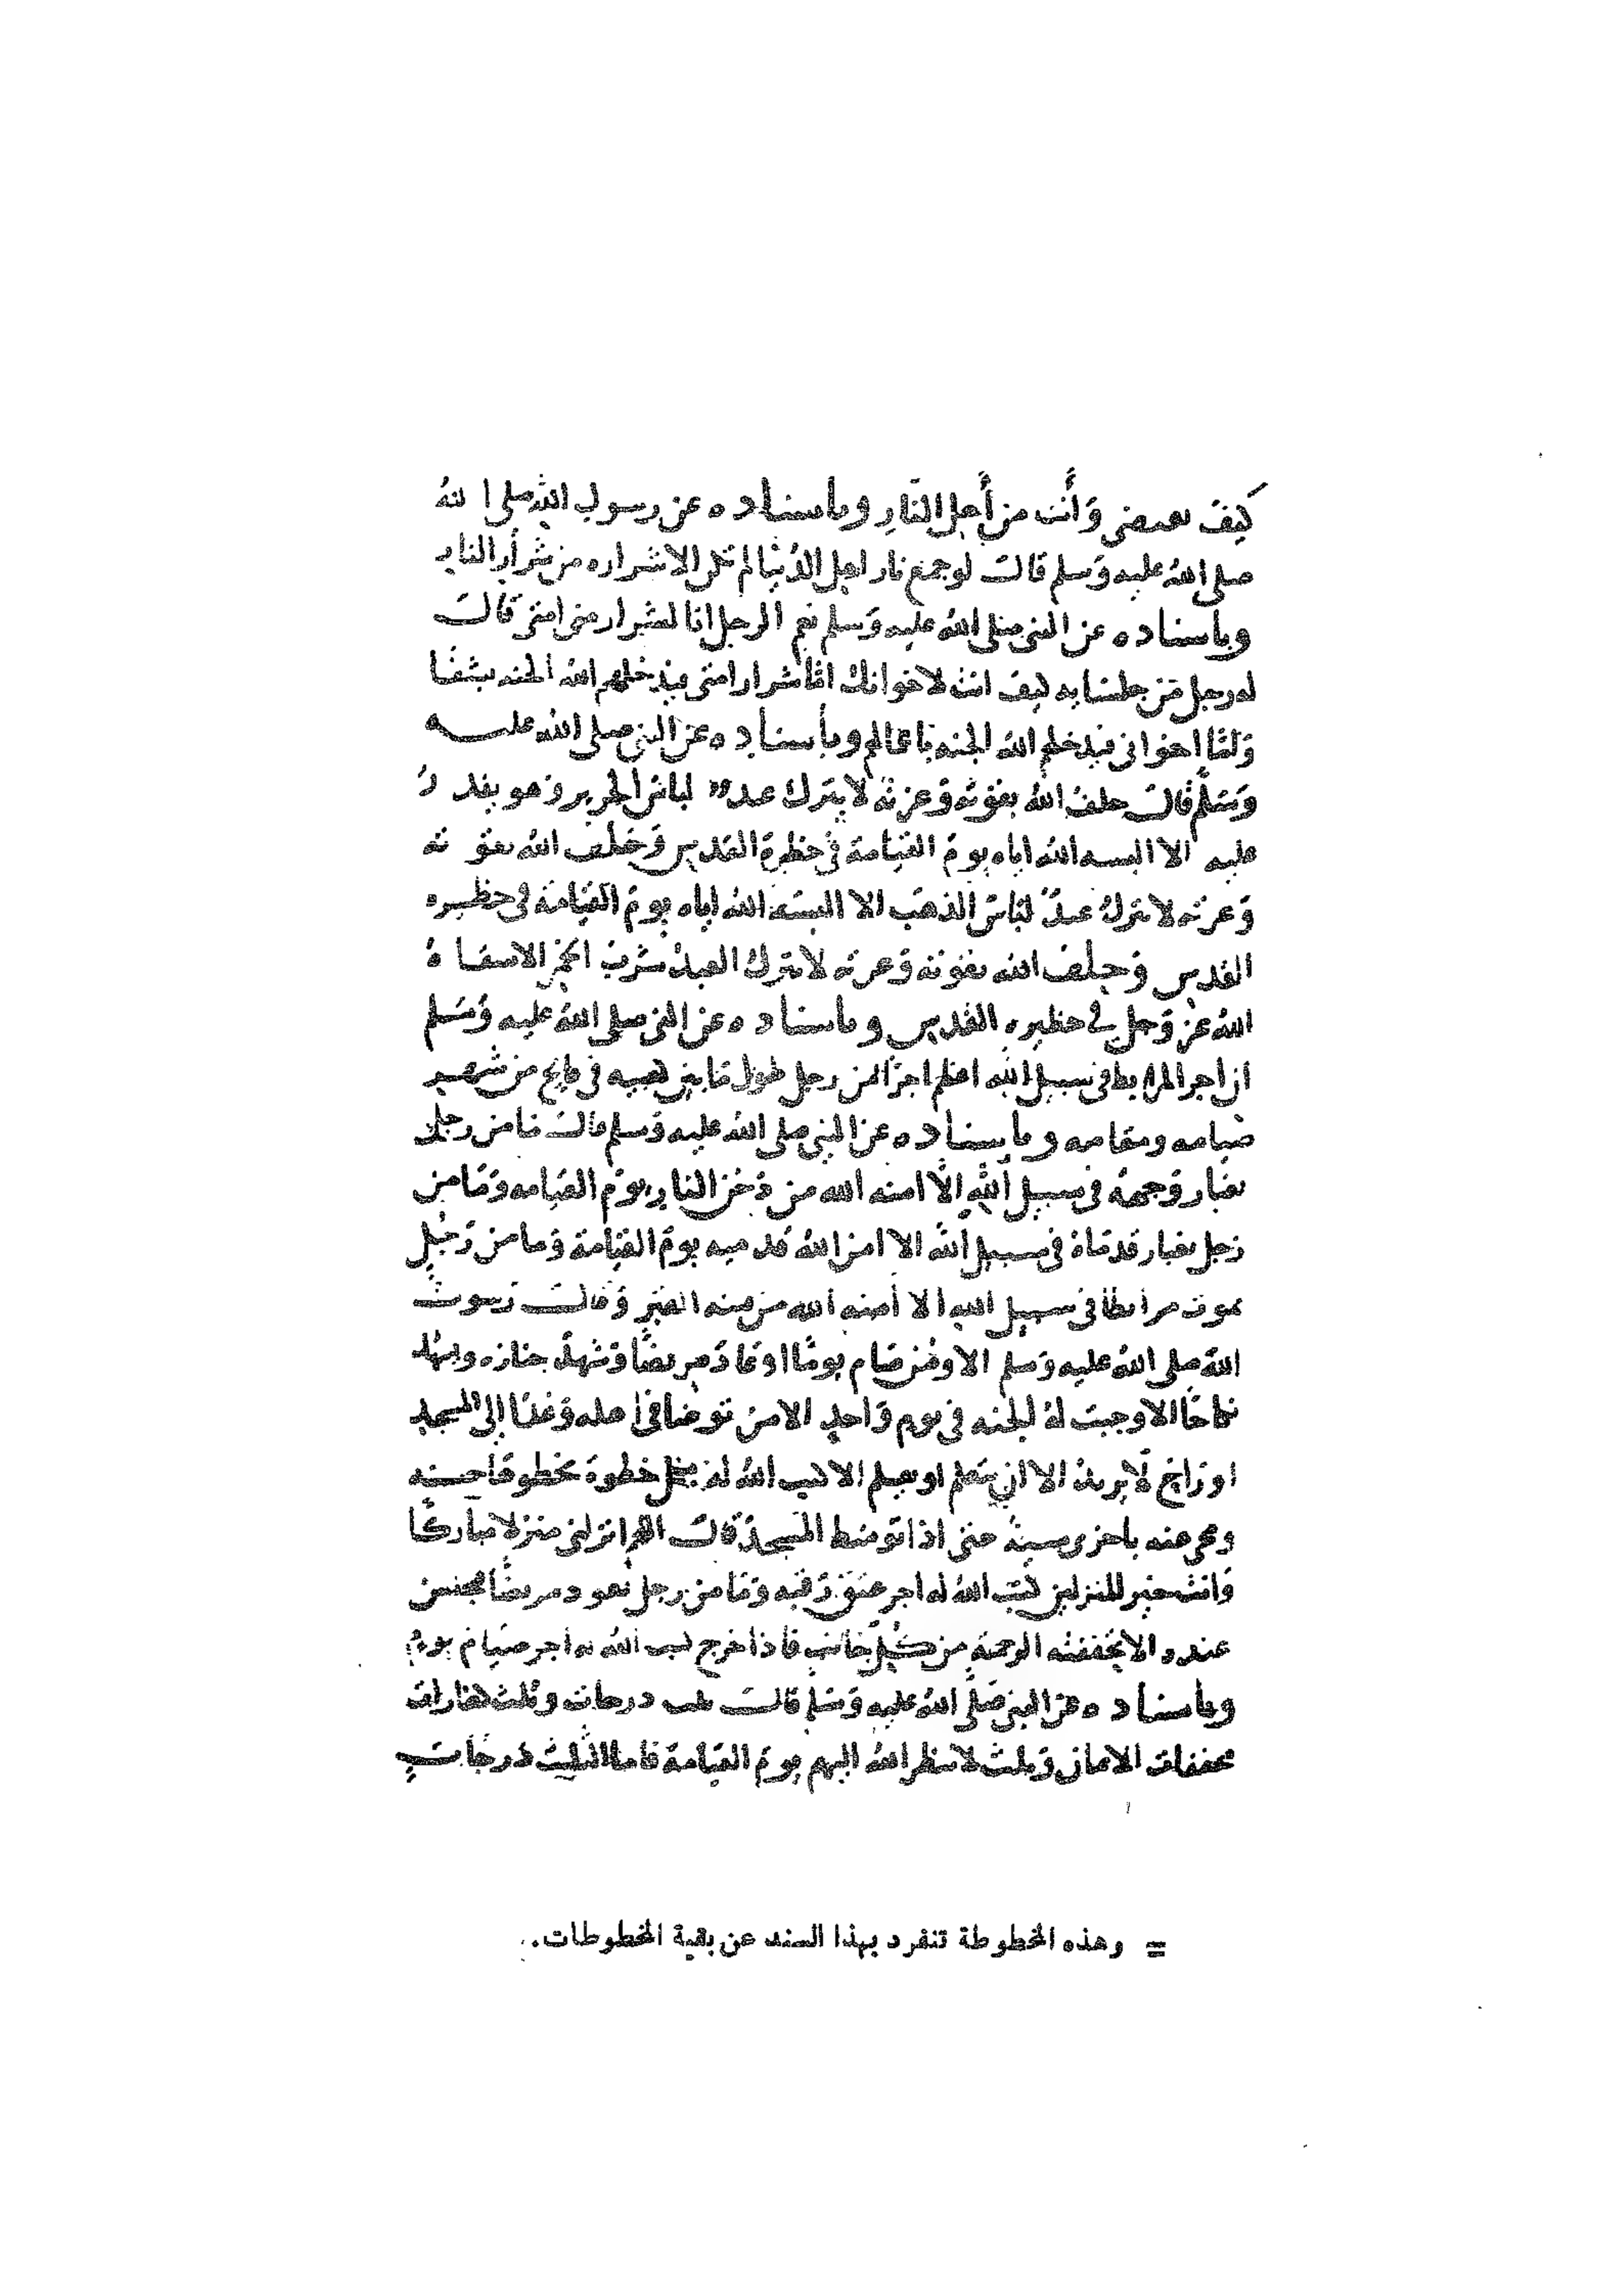 كيف بعصى وأنت من أهل النار وبأسناده عن رسول الله صلى الله
صلى الله عليه وسلم قال لو جمع نار اهل الدنيا لم تكن الا شراره من شرار النار
وبأسناده عن النبي صلى الله عليه وسلم نعم الرجل انا لشرار من امتى قال
له رجل من جلسايه كيف انت لاخوانك اما شرار امتى فيدخلهم الله الجنه بشفا
واما اخوانى فيدخلهم الله الجنه باعمالهم وبأسناده عن النبي صلى الله عليه
وسلم قال حلف الله بقوته وعزته لا يترك عبد لباس الحرير وهو يقدر
عليه الا البسه الله اياه يوم القيامة في حظرة القدس وحلف الله بقوته
وعزته لا يترك عبد لباس الذهب الا البسه الله اياه يوم القيامة فى حظيره
القدس وحلف الله بقوته وعزته لا يترك العبد شرب الخمر الا سقاه
الله عز وجل في حظيره القدس وبأسناده عن النبي صلى الله عليه وسلم
ان اجر المرابط فى سبيل الله اعظم اجرا من رجل طول ما بين كعبيه في من شهر
صيامه ومقامه وبأسناده عن النبي صلى الله عليه وسلم قال ما من رجل
يغبار وجهه فى سبيل الله إلا امنه الله من دخن النار يوم القيامه وما من
رجل يغبار قدماه فى سبيل الله الا امن الله قدميه يوم القيامة وما من رجل
يموت مرابطا فى سبيل الله الا أمنه الله من فتنه القبر وقال رسول
الله صلى الله عليه وسلم الا ومن صام يوما او عاد مريضا وشهد جنازه ويشهد
نكاحا الا وجبت له الجنه فى يوم واحد الا من توضا في أهله وغدا إلى المسجد
او رائح لا يريد الا ان يتعلم او يعلم الا كتب الله له بكل خطوة يخطوها حسنه
ومحى عنه باخرى سيئه حتى اذا توسط المسجد قال اللهم انزلنى منزلا مباركا
وانت خير المنزلين كتب الله له اجر عتق رقبه وما من رجل يعود مريضا فيجلس
عنده الا تخففته الرحمة من كل جانب فاذا خرج كتب الله له اجر صيام يوم
وبأسناده عن النبي صلى الله عليه وسلم قال ثلث درجات وثلث كفارات
الايمان وثلث لا ينظر الله اليهم يوم القيامة فاما الثلث درجات
= وهذه المخطوطة تنفرد بهذا السند عن بقية المخطوطات.